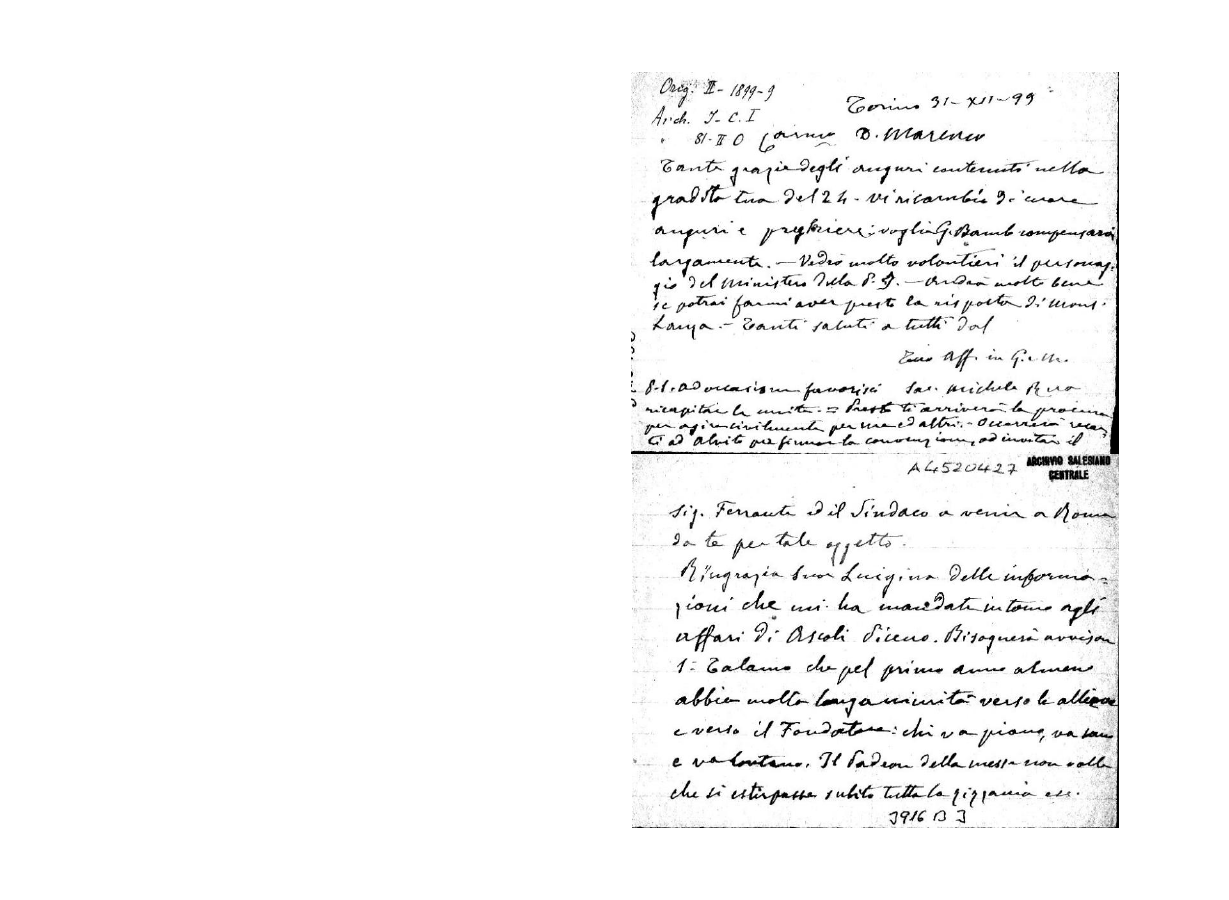 Orig. II - 1899-9
Torino 31-XII-99
Arch. I-C.I
" 81-II O
Carmo D. Marenco
Tante grazie degli auguri contenuti nella
gradita tua del 24 - vi ricambio di cuore
auguri e preghiere: voglia G. Bamb compensarvi
largamente. - Vedrò molto volontieri il personag-
gio del Ministero della P. I. - Andrà molto bene
se potrai farmi aver presto la risposta di Mons.
- Tanti saluti a tutti dal
Tuo Aff. in G. e M.
Sac. Michele Rua
P.S. ad occasione favorisci
ricapitar le unite. = Presto ti arriverà la procura
per agire civilmente per me ed altri. - Occorrerà recar
ti ad Alvito per firmar la convenzione, od invitar il
A4520427
ARCHIVIO SALESIANO
CENTRALE
sig. Ferrante ed il Sindaco a venir a Roma
da te per tale oggetto.
Ringrazia Suor Luigina delle informa=
zioni che mi ha mandate intorno agli
affari di Ascoli Piceno. Bisognerà avvisar
Talamo che pel primo anno almeno
abbia molta longanimità verso le allieve
e verso il Fondatore: chi va piano, va sano
e va lontano. Il Padron della messe non volle
che si estirpasse subito tutta la zizzania ecc.
3916 B 3